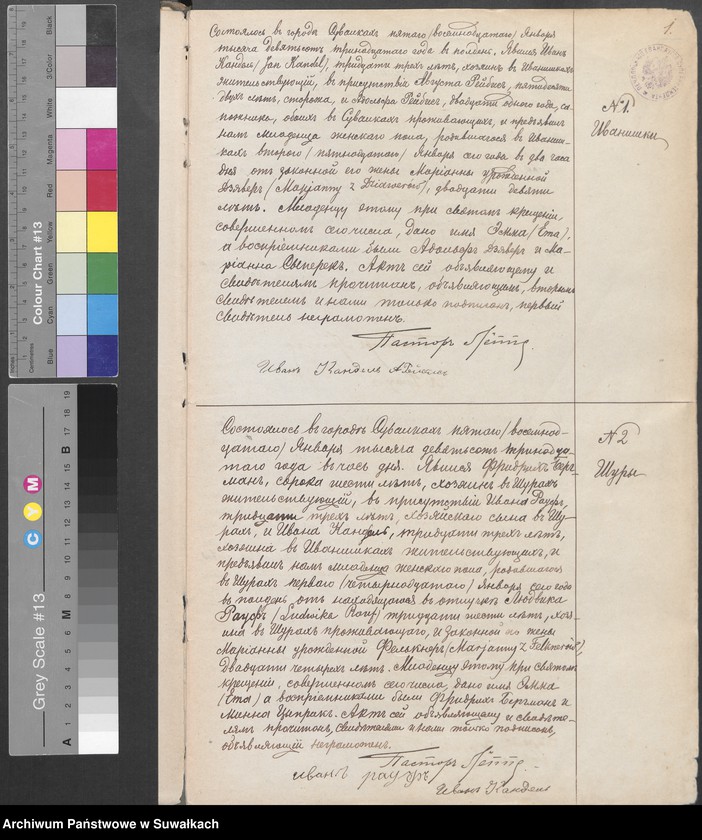 1.
Состоялось въ городѣ Сувалкахъ пятаго/восемнадцатаго/ Января
тысяча девятьсотъ тринадцатаго года въ полдень. Явился Иванъ
Кандель/Jan Kandel/, тридцати трехъ лѣтъ, хозяинъ въ Иванишкахъ
жительствующій, въ присутствіи Августа Рейбнеръ, пятидесяти
двухъ лѣтъ, сторожа, и Адольфа Рейбнеръ, двадцати одного года, са-
пожника, обоихъ въ Сувалкахъ проживающихъ и предъявилъ
намъ младенца женскаго пола, родившагося въ Иваниш-
кахъ второго/пятнадцатаго/ Января сего года въ два часа
дня отъ законной его жены Маріанны урожденной
/Marjanny z
двадцати девяти
лѣтъ. Младенцу этому при святомъ крещеніи,
совершенномъ сего числа, дано имя Эмма/Ema/,
а воспріемниками были Адольфъ и Ма-
ріанна Актъ сей объявляющему и
свидѣтелямъ прочитанъ, объявляющимъ, вторымъ
свидѣтелемъ и нами только подписанъ, первый
свидѣтель неграмотенъ.
Пасторъ
Иванъ Кандель
№1.
Иванишки
Состоялось въ городѣ Сувалкахъ пятаго/восемнад-
цатаго/ Января тысяча девятьсотъ тринадца-
таго года въ часъ дня. Явился Фридрихъ Берг-
манъ, сорока шести лѣтъ, хозяинъ въ Шурахъ
жительствующій, въ присутствіи Ивана Рауфъ,
тридцати трехъ лѣтъ, хозяйскаго сына въ Шу-
рахъ, и Ивана Кандель, тридцати трехъ лѣтъ,
хозяина въ Иванишкахъ жительствующихъ, и
предъявилъ намъ младенца женскаго пола, родившагося
въ Шурахъ перваго/четырнадцатаго/ Января сего года
въ полдень отъ находящагося въ отлучкѣ Людвика
Рауфъ/Ludwika Rauf/ тридцати шести лѣтъ, хозя-
ина въ Шурахъ проживающаго, и законной его жены
Маріанны урожденной Фелькнеръ/Marjanny z
двадцати четырехъ лѣтъ. Младенцу этому при святомъ
крещеніи, совершенномъ сего числа, дано имя Эмма
/Ema/ а воспріемниками были Фридрихъ Бергманъ и
Минна Ципракъ. Актъ сей объявляющему и свидѣте-
лямъ прочитанъ, свидѣтелями и нами только подписанъ,
объявляющій неграмотенъ.
Пасторъ
Иванъ рауфъ
Иванъ Кандель
№2
Шуры
Colour Chart #13
Inches
Centimetres
Black
3/Color
White
Magenta
Red
Yellow
Green
Cyan
Blue
Grey Scale #13
C Y M
A 1 2 3 4 5 6 M 8 9 10 11 12 13 14 15 B 17 18 19
Archiwum Państwowe w Suwałkach